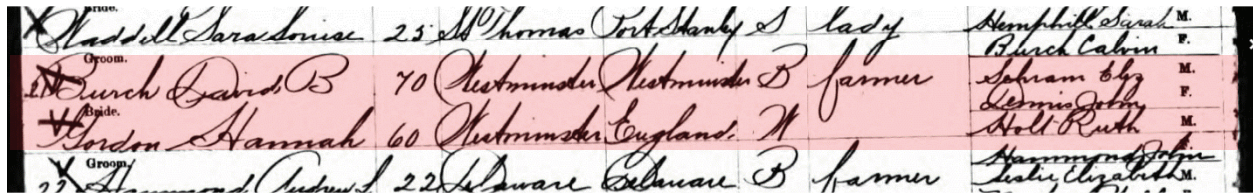 Bride.
Waddell Sara Louise 25 St Thomas Port Stanley S lady Hemphill Sarah M.
Burch Calvin F.
Groom.
21 Burch David B 70 Westminster Westminster B farmer Schram Elyz M.
Dennis John F.
Bride.
Gordon Hannah 60 Westminster England. W Holt Ruth M.
Groom.
Hammond John
22 Hammond Andrew L 22 Delaware Delaware B farmer Leslie Elizabeth M.